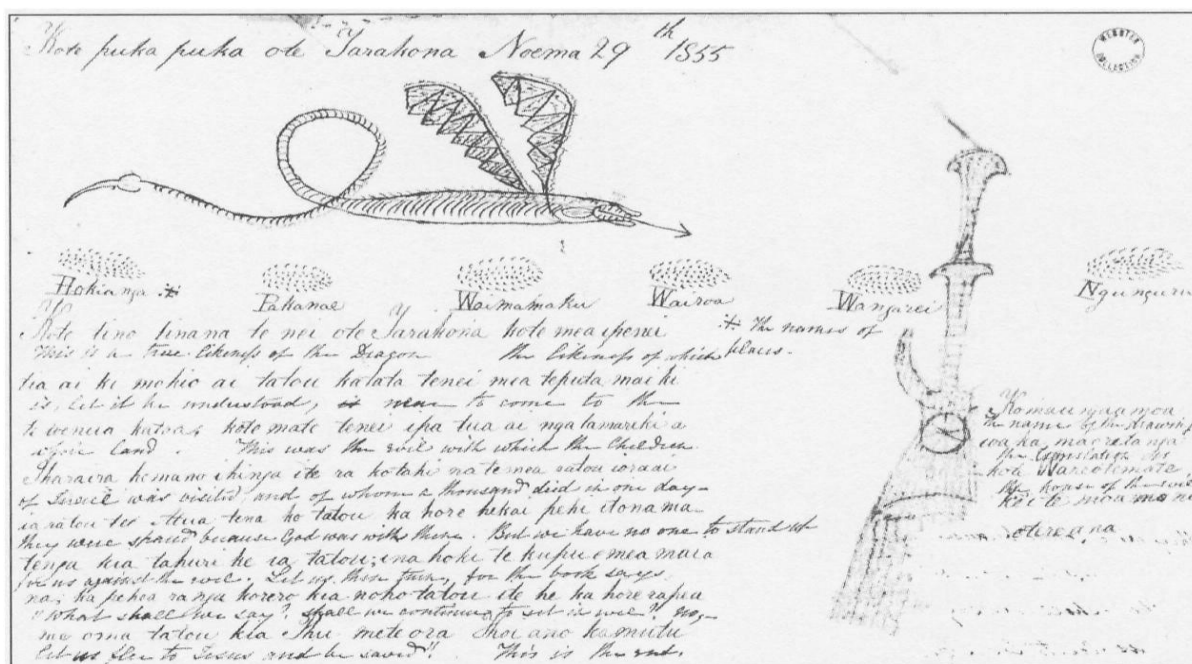 Kote puka puka ote Tarakona Noema 29th 1855
WEBSTER COLLECTION
Hokianga
Pakanae
Waimamaku
Wairoa
Wangarei
Ngunguru
Kote tino tinana te nei ote Tarakona kote mea iponei
This is a true likeness of the Dragon the likeness of which
The names of
places.
tia ai ki mohio ai tatou katata tenei mea teputa mai ki
is, let it be understood, is near to come to the
te wenua katoa, kote mate tenei ipa tua ai nga tamariki a
whole land. This was the evil with which the Children
Iharaira kemano ihinga ite ra kotahi na temea ratou ioraai
of Israel was visited, and of whom a thousand died in one day-
ia ratou te Atua tena ko tatou ka hore hekai itona ma-
they were spared because God was with them. But we have no one to stand up
tenga kia tahuri ke ia tatou; ina hoki te kupu emea maia
for us against the evil. Let us then turn, for the book says,
na; ka pehea ranga korero kia noho tatou ite he ka hore rapia
"What shall we say? shall we continue to sit in evil? no-
me oma tatou kia Ihu mete ora Hoi ano kamutu
let us flee to Jesus and be saved". This is the end.
the name of the drawing
the translation is
koia Wareotemate
the house of the evil